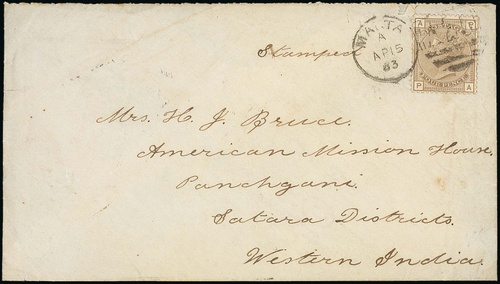 MALTA
A
AP 15
83
A
P A
Stamped
Mrs. H. J. Bruce.
American Mission House.
Panchgani.
Satara Districts.
Western India.